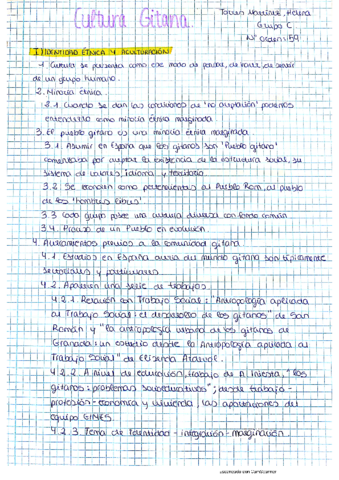 Cultura Gitana.
Torres Martínez, Helena
Grupo C
Nº Orden: 59
I) IDENTIDAD ÉTNICA Y ACULTURACIÓN
1. Cultura se presenta como ese modo de pensar, de hacer, de sentir
de un grupo humano.
2. Minoría étnica.
2.1. Cuando se dan las condiciones de "no aceptación" podemos
entenderlo como minoría étnica marginada.
3. El pueblo gitano es una minoría étnica marginada.
3.1. Asumir en España que los gitanos son "Pueblo gitano"
comenzaba por aceptar la existencia de la estructura social, su
sistema de valores, idioma y territorio.
3.2. Se conocían como pertenecientes al Pueblo Rom, al pueblo
de los "hombres libres".
3.3 Cada grupo posee una cultura diversa con fondo común
3.4. Proceso de un Pueblo en evolución.
4. Acercamientos previos a la comunidad gitana
4.1. Estudios en España acerca del mundo gitano son típicamente
sectoriales y particulares
4.2. Aparecen una serie de trabajos.
4.2.1. Relación con Trabajo Social: "Antropología aplicada
al Trabajo Social: el desarrollo de los gitanos" de San
Román y "la antropología urbana de los gitanos de
Granada: un estudio desde la Antropología aplicada al
Trabajo Social" de Elisenda Ardévol.
4.2.2. A nivel de educación, trabajo de A. Iniesta, "los
gitanos: problemas socioeducativos"; desde trabajo-
profesión-economía y vivienda, las aportaciones del
equipo GIEMS
4.2.3. Tema de Identidad - integración - marginación.
Escaneado con CamScanner